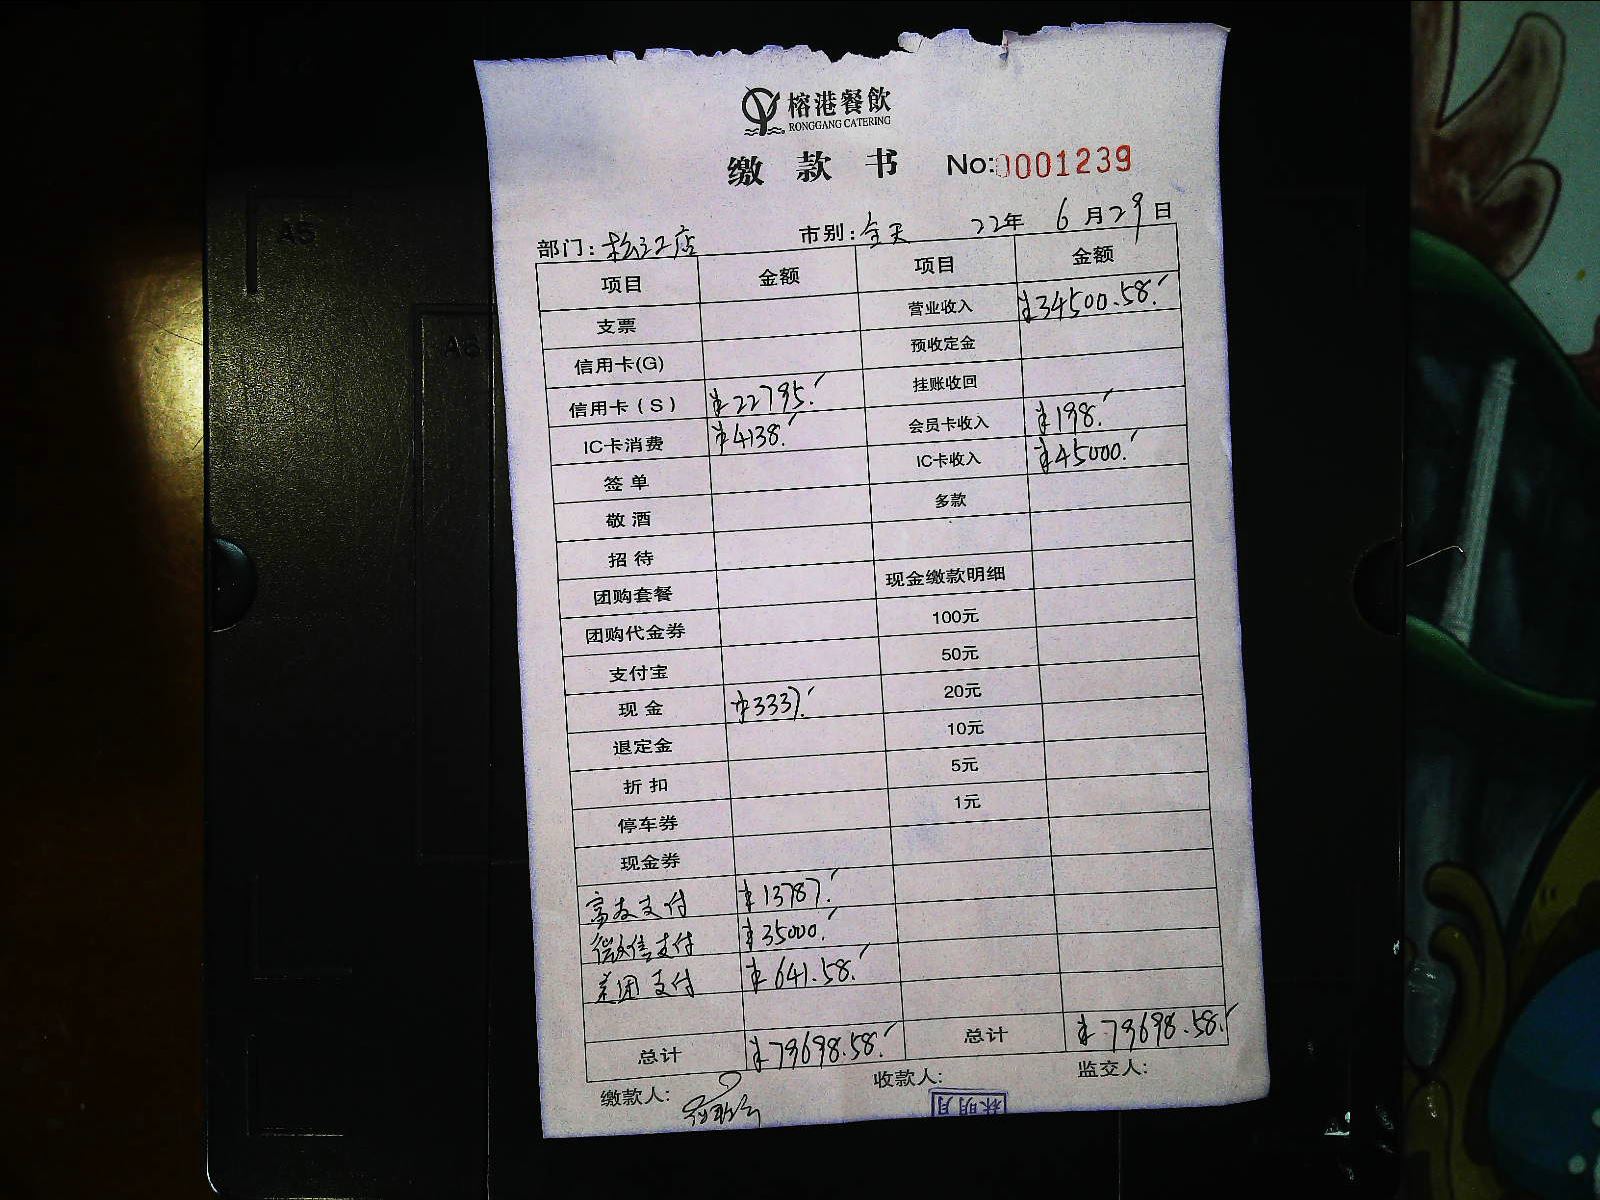 榕港餐飲
RONGGANG CATERING
缴款书 No:0001239
部门：松江店 市别：全天 22年 6月29日
项目 金额 项目 金额
支票 营业收入 ¥34500.58.
信用卡(G) 预收定金
信用卡（S） ¥22795. 挂账收回
IC卡消费 ¥4138. 会员卡收入 ¥198.
签单 IC卡收入 ¥45000.
敬酒 多款
招待
团购套餐 现金缴款明细
团购代金券 100元
支付宝 50元
现金 ¥3337. 20元
退定金 10元
折扣 5元
停车券 1元
现金券
富友支付 ¥13787.
微信支付 ¥35000.
美团支付 ¥641.58.
总计 ¥79698.58. 总计 ¥79698.58.
缴款人: 收款人: 监交人:
林明月
A5
A6